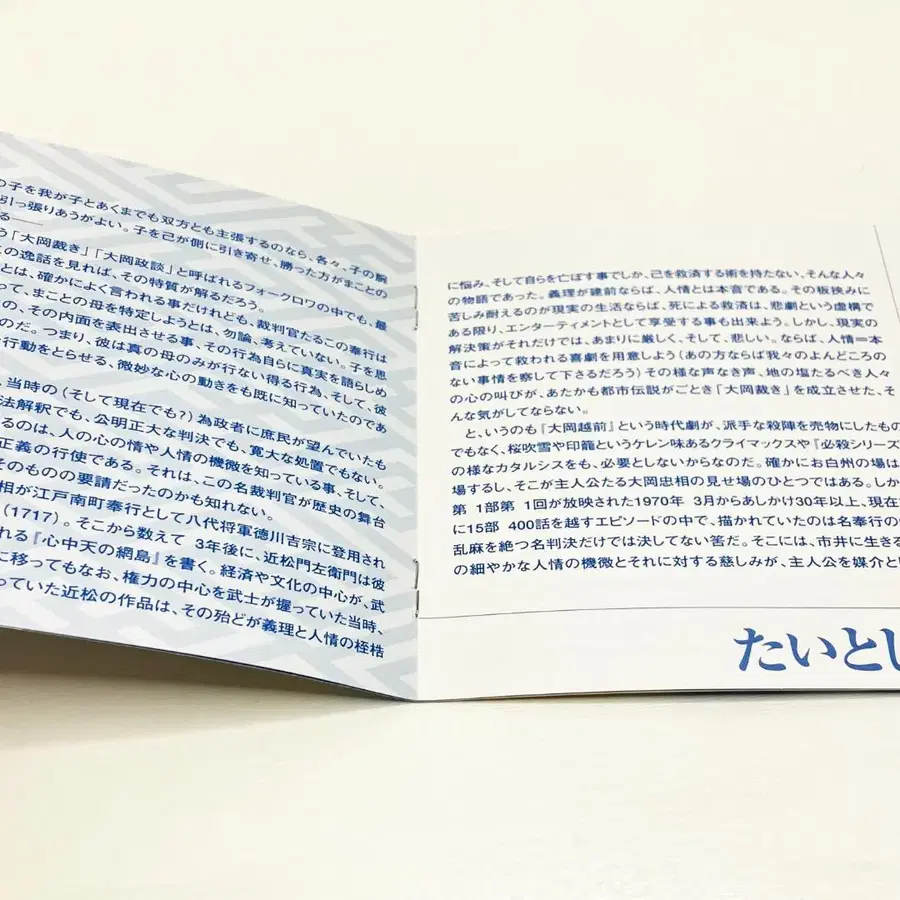 の子を我が子とあくまでも双方とも主張するのなら、各々、子の腕
引っ張りあうがよい。子を己が側に引き寄せ、勝った方がまことの
る――
う「大岡裁き」「大岡政談」と呼ばれるフォークロワの中でも、最
この逸話を見れば、その特質が解るだろう。
とは、確かによく言われる事だけれども、裁判官たるこの奉行は
って、まことの母を特定しようとは、勿論、考えていない。子を思
の、その内面を表出させる事、その行為自らに真実を語らしめ
のだ。つまり、彼は真の母のみが行ない得る行為、そして、彼
行動をとらせる、微妙な心の動きをも既に知っていたのであ
、当時の（そして現在でも？）為政者に庶民が望んでいたも
法解釈でも、公明正大な判決でも、寛大な処置でもない。
るのは、人の心の情や人情の機微を知っている事、そして、
正義の行使である。それは、この名裁判官が歴史の舞台
そのものの要請だったのかも知れない。
相が江戸南町奉行として八代将軍徳川吉宗に登用され
（1717）。そこから数えて 3年後に、近松門左衛門は彼
れる『心中天の網島』を書く。経済や文化の中心が、武
に移ってもなお、権力の中心を武士が握っていた当時、
っていた近松の作品は、その殆どが義理と人情の桎梏
に悩み、そして自らを亡ぼす事でしか、己を救済する術を持たない、そんな人々
の物語であった。義理が建前ならば、人情とは本音である。その板挟みに
苦しみ耐えるのが現実の生活ならば、死による救済は、悲劇という虚構で
ある限り、エンターティメントとして享受する事も出来よう。しかし、現実の
解決策がそれだけでは、あまりに厳しく、そして、悲しい。ならば、人情＝本
音によって救われる喜劇を用意しよう（あの方ならば我々のよんどころの
ない事情を察して下さるだろう）その様な声なき声、地の塩たるべき人々
の心の叫びが、あたかも都市伝説がごとき「大岡裁き」を成立させた、そ
んな気がしてならない。
と、いうのも『大岡越前』という時代劇が、派手な殺陣を売物にしたもの
でもなく、桜吹雪や印籠というケレン味あるクライマックスや『必殺シリーズ
の様なカタルシスをも、必要としないからなのだ。確かにお白州の場は
場するし、そこが主人公たる大岡忠相の見せ場のひとつではある。しか
第 1部第 1回が放映された1970年 3月からあしかけ30年以上、現在
に15部 400話を越すエピソードの中で、描かれていたのは名奉行の
乱麻を絶つ名判決だけでは決してない筈だ。そこには、市井に生きる
の細やかな人情の機微とそれに対する慈しみが、主人公を媒介と
たいとし